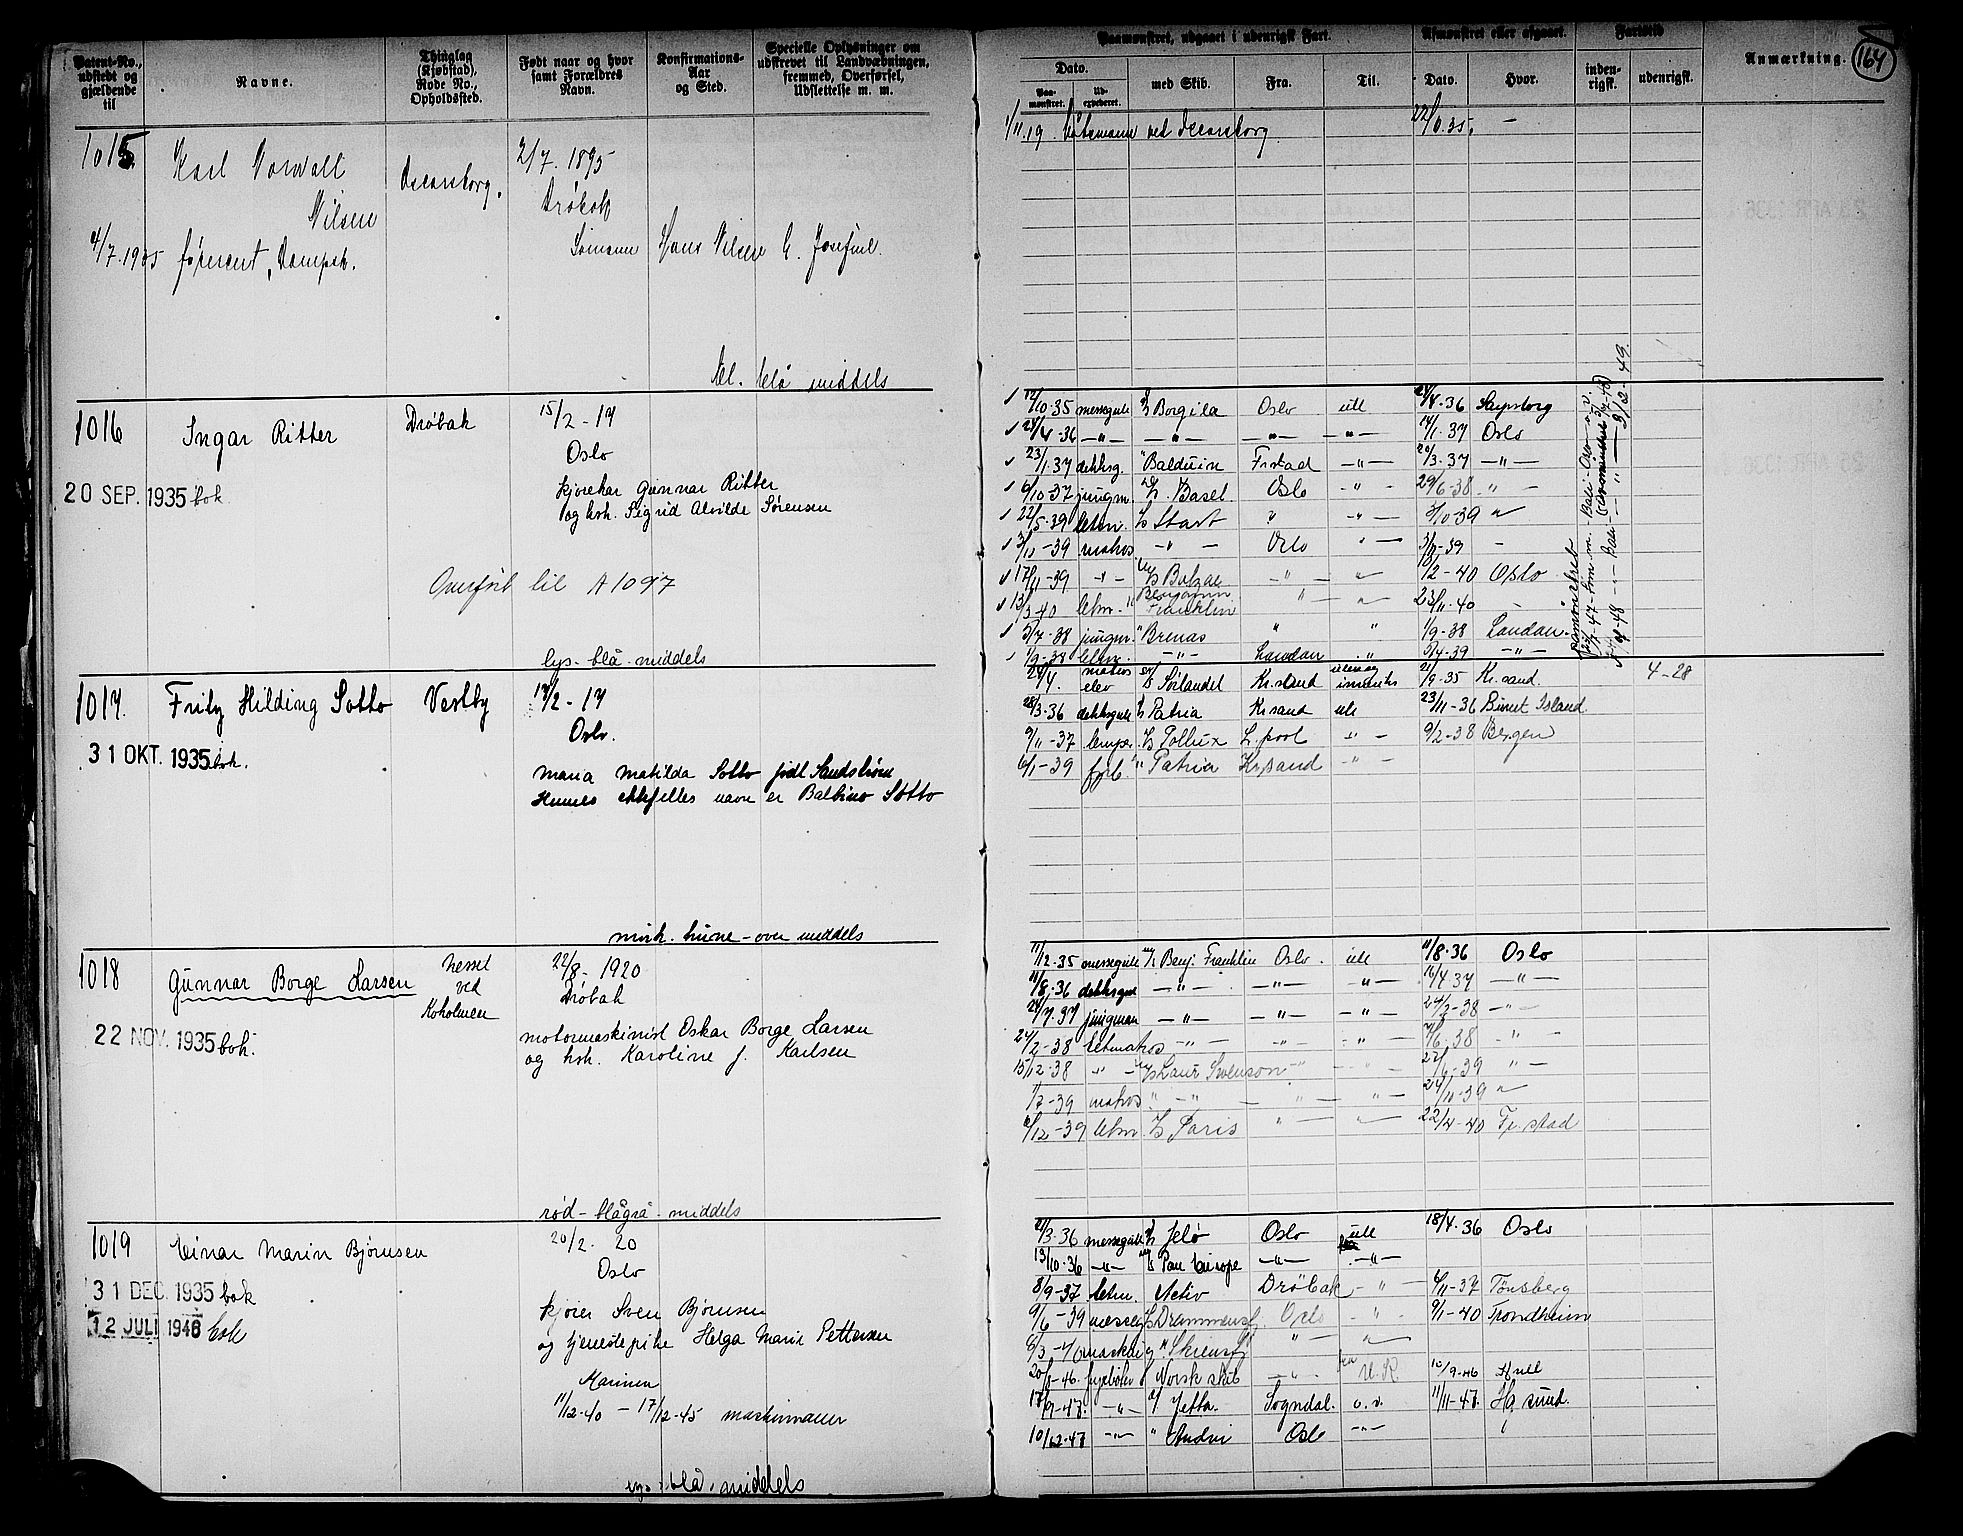 Patent-No., udstedt og gjældende til
Navne.
Thinglag (Kjøbstad), Rode No., Opholdssted.
Født naar og hvor samt Forældres Navn.
Konfirmations-Aar og Sted.
Specielle Oplysninger om udskrevet til Landværningen, fremmed, Overførsel, Udslettelse m. m.
Paamønstret, udgaaet i udenrigsk Fart.
Dato.
Paa-mønstret.
Ud-expederet.
med Skib.
Fra.
Til.
Afmønstret eller afgaaet.
Dato.
Hvor.
Fartstid
inden-rigsk.
udenrigsk.
Anmærkning.
164
1015
Karl
Nilsen
Oscarsborg.
2/7. 1895
Drøbak
4/7.1935
Sømann Hans Nilsen
1/11.19 ved Oscarsborg
middels
1016 Ingar Ritter Drøbak 15/2-17
Oslo
20 SEP. 1935 bok
kjørekar Gunnar Ritter
og hst. Sigrid Alvilde Sørensen
Overført til A 1097
lys - blå - middels
12/10.35 messegutt Borgila Oslo utl 24/4-36 Sarpsborg
24/4-36 -"- -"- -"- -"- 14/1.37 Oslo
23/1.37 dekksg. " Balduin F.stad -"- 20/3-37 -"-
6/10-37 jungm. Basel Oslo -"- 29/6-38 "
22/5-39 letm. Start " -"- 3/10-39 "
3/10-39 matros -"- Oslo "- 3/11-39 -
17/11-39 -"- Balzac -"- " 10/2-40 Oslo
13/3-40 letm. " Benjamin Franklin " " 23/11-40 -
5/7-38 jungm. " Brenas " " 1/9-38 Landan.
1/9-38 letm. -"- Landan " 3/4-39 -"-
1017. Fritz Hilding Sotto Vestby 17/2-17
Oslo.
31 OKT. 1935 bok.
Maria Matilda Sotto født Sandstrøm
Hennes ektefelles navn er Balbino Sotto
mørk. brune - over middels
24/4. matros elev Sørlandet Kr.sand 21/9-35 Kr.sand. 4-28
28/3-36 dekksgutt Patria Kr.sand utl 23/11-36
9/11-37 Pollux L.pool -"- 9/2-38 Bergen
6/1-39 " Patria Kr.sand -"-
1018 Gunnar Borge Larsen Nesset ved Koholmen 22/8-1920
Drøbak
22 NOV. 1935 bok.
motormaskinist Oskar Borge Larsen
og hst. Karoline f. Karlsen
rød - blågrå - middels
11/12.35 messegutt Benj. Franklin Oslo. utl 11/8.36 Oslo
11/8.36 dekksgut -"- -"- -"- 16/4 37 -"-
24/7.37 jungman -"- -"- -"- 24/2-38 -"-
24/2-38 lettmatros -"- -"- -"- 7/6.38 "
15/12-38 -"- Laur Swenson -"- -"- 27/6-39 "
1/7-39 matros " -"- " " 24/10-39 "
12-39 letm. Paris " " 22/4-40 Fr.stad
1019 Einar Marin Bjørnsen 20/2. 20
Oslo
31 DEC. 1935 bok
12 JULI 1946 bok
kjører Sven Bjørnsen
og tjenestepike Helga Marie Pettersen
Marinen
11/12-40 - 17/12-45 maskinmann
lys - blå. middels
3-36 messegutt Jelø Oslo utl 18/4.36 Oslo
13/10.36 -"- Pan Europe -"- -"-
8/9-37 letm. Activ Drøbak -"- 6/11-37 Tønsberg
9/6-39 Drammensfj. Oslo -"- 9/1-40 Trondheim
6/3-40 " Skiensfj " "
20/8-46. fyrbøter Norsk -"- fra U.K. 10/9-46 Hull
17/9-47. -"- Jetta. Sogndal. o.s. 11/11-47. Hg sund.
10/12-47 -"- " Andvi Oslo -"-